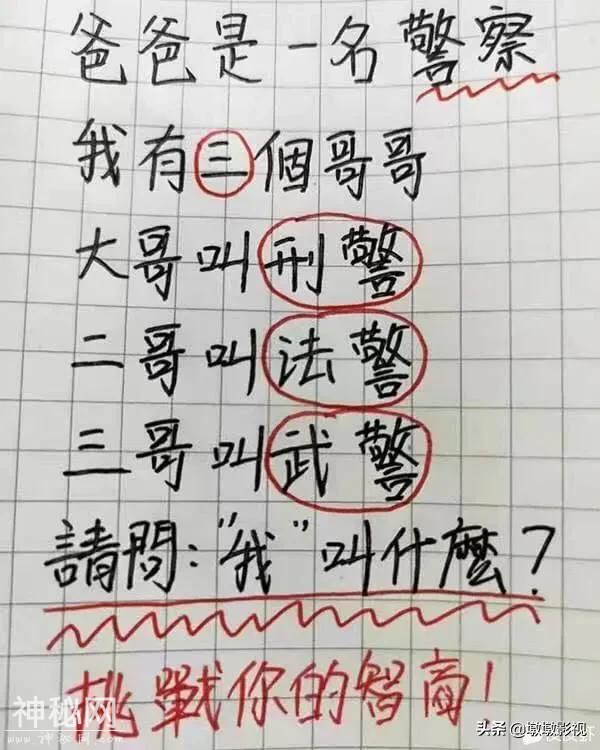 爸爸是一名警察
我有三個哥哥
大哥叫刑警
二哥叫法警
三哥叫武警
請問:"我"叫什麼?
挑戰你的智商!
神秘网
www.神秘网.com
头条 @墩墩影视